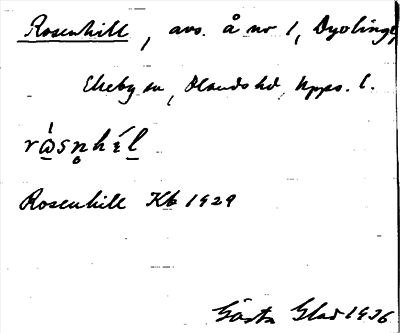 Rosenhill, avs. å nr 1, Dyvlinge,
Ekeby sn, Olands hd, Upps. l.
rɷ́sn̥hɛ́l
Rosenhill Kb 1929
Gösta Glad 1936